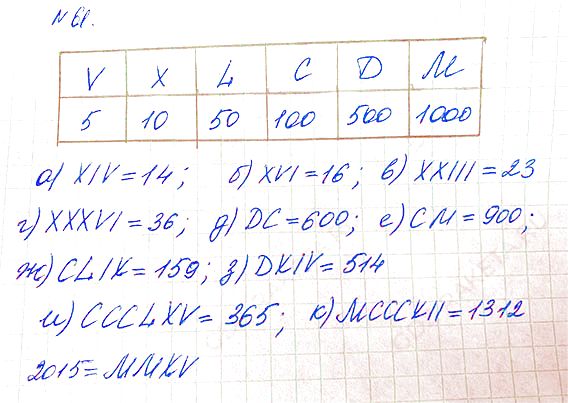 № 61.
V X L C D M
5 10 50 100 500 1000
а) XIV = 14; б) XVI = 16; в) XXIII = 23
г) XXXVI = 36; д) DC = 600; е) CM = 900;
ж) CLIX = 159; з) DXIV = 514
и) CCCLXV = 365; к) MCCCXII = 1312
2015 = MMXV